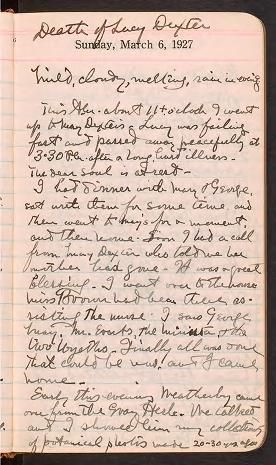 Death of Lucy Dexter
Sunday, March 6, 1927
Mild, cloudy, melting, rain in evening
This A.M. about 11+ o'clock I went
up to May Dexter's & Lucy was failing
fast and passed away peacefully at
3.30 P.M. after a long hard illness.
The dear soul is at rest.
I had dinner with Mary & George,
sat with them for some time, and
then went to for a moment,
and then home. Soon I had a call
from May Dexter who told me her
mother had gone. It was a great
blessing. I went over to the house
Miss Brown had been there as-
sisting the nurse. I saw George,
Mary, Mr. the minister & the
two Finally all was done
that could be and I came
home.
Early this evening Weatherby came
over from the Gray Herb. We talked
and I showed him my collection
of botanical photos made 20-30 yrs ago